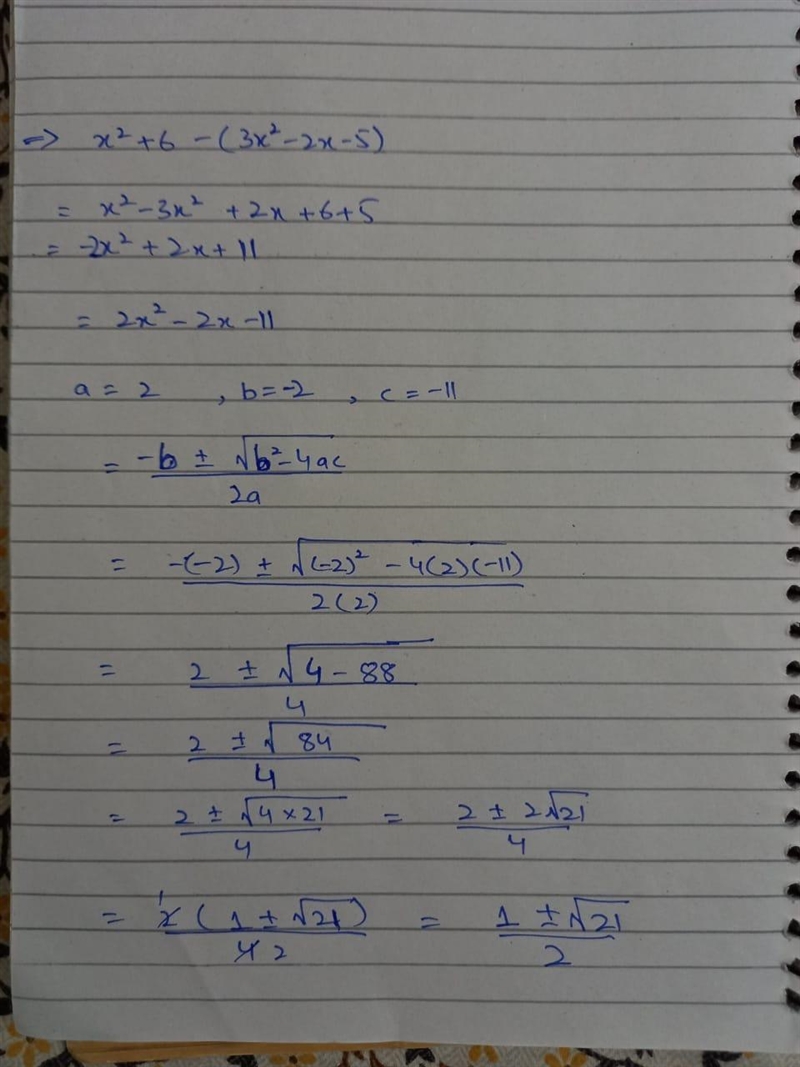 ⇒ x² + 6 - (3x² - 2x - 5)
= x² - 3x² + 2x + 6 + 5
= -2x² + 2x + 11
= 2x² - 2x - 11
a = 2 , b = -2 , c = -11
= (-b ± √(b² - 4ac)) / 2a
= (-(-2) ± √((-2)² - 4(2)(-11))) / 2(2)
= (2 ± √(4 - 88)) / 4
= (2 ± √84) / 4
= (2 ± √(4 × 21)) / 4 = (2 ± 2√21) / 4
= 2̸ 1 (1 ± √21) / 4̸ 2 = (1 ± √21) / 2